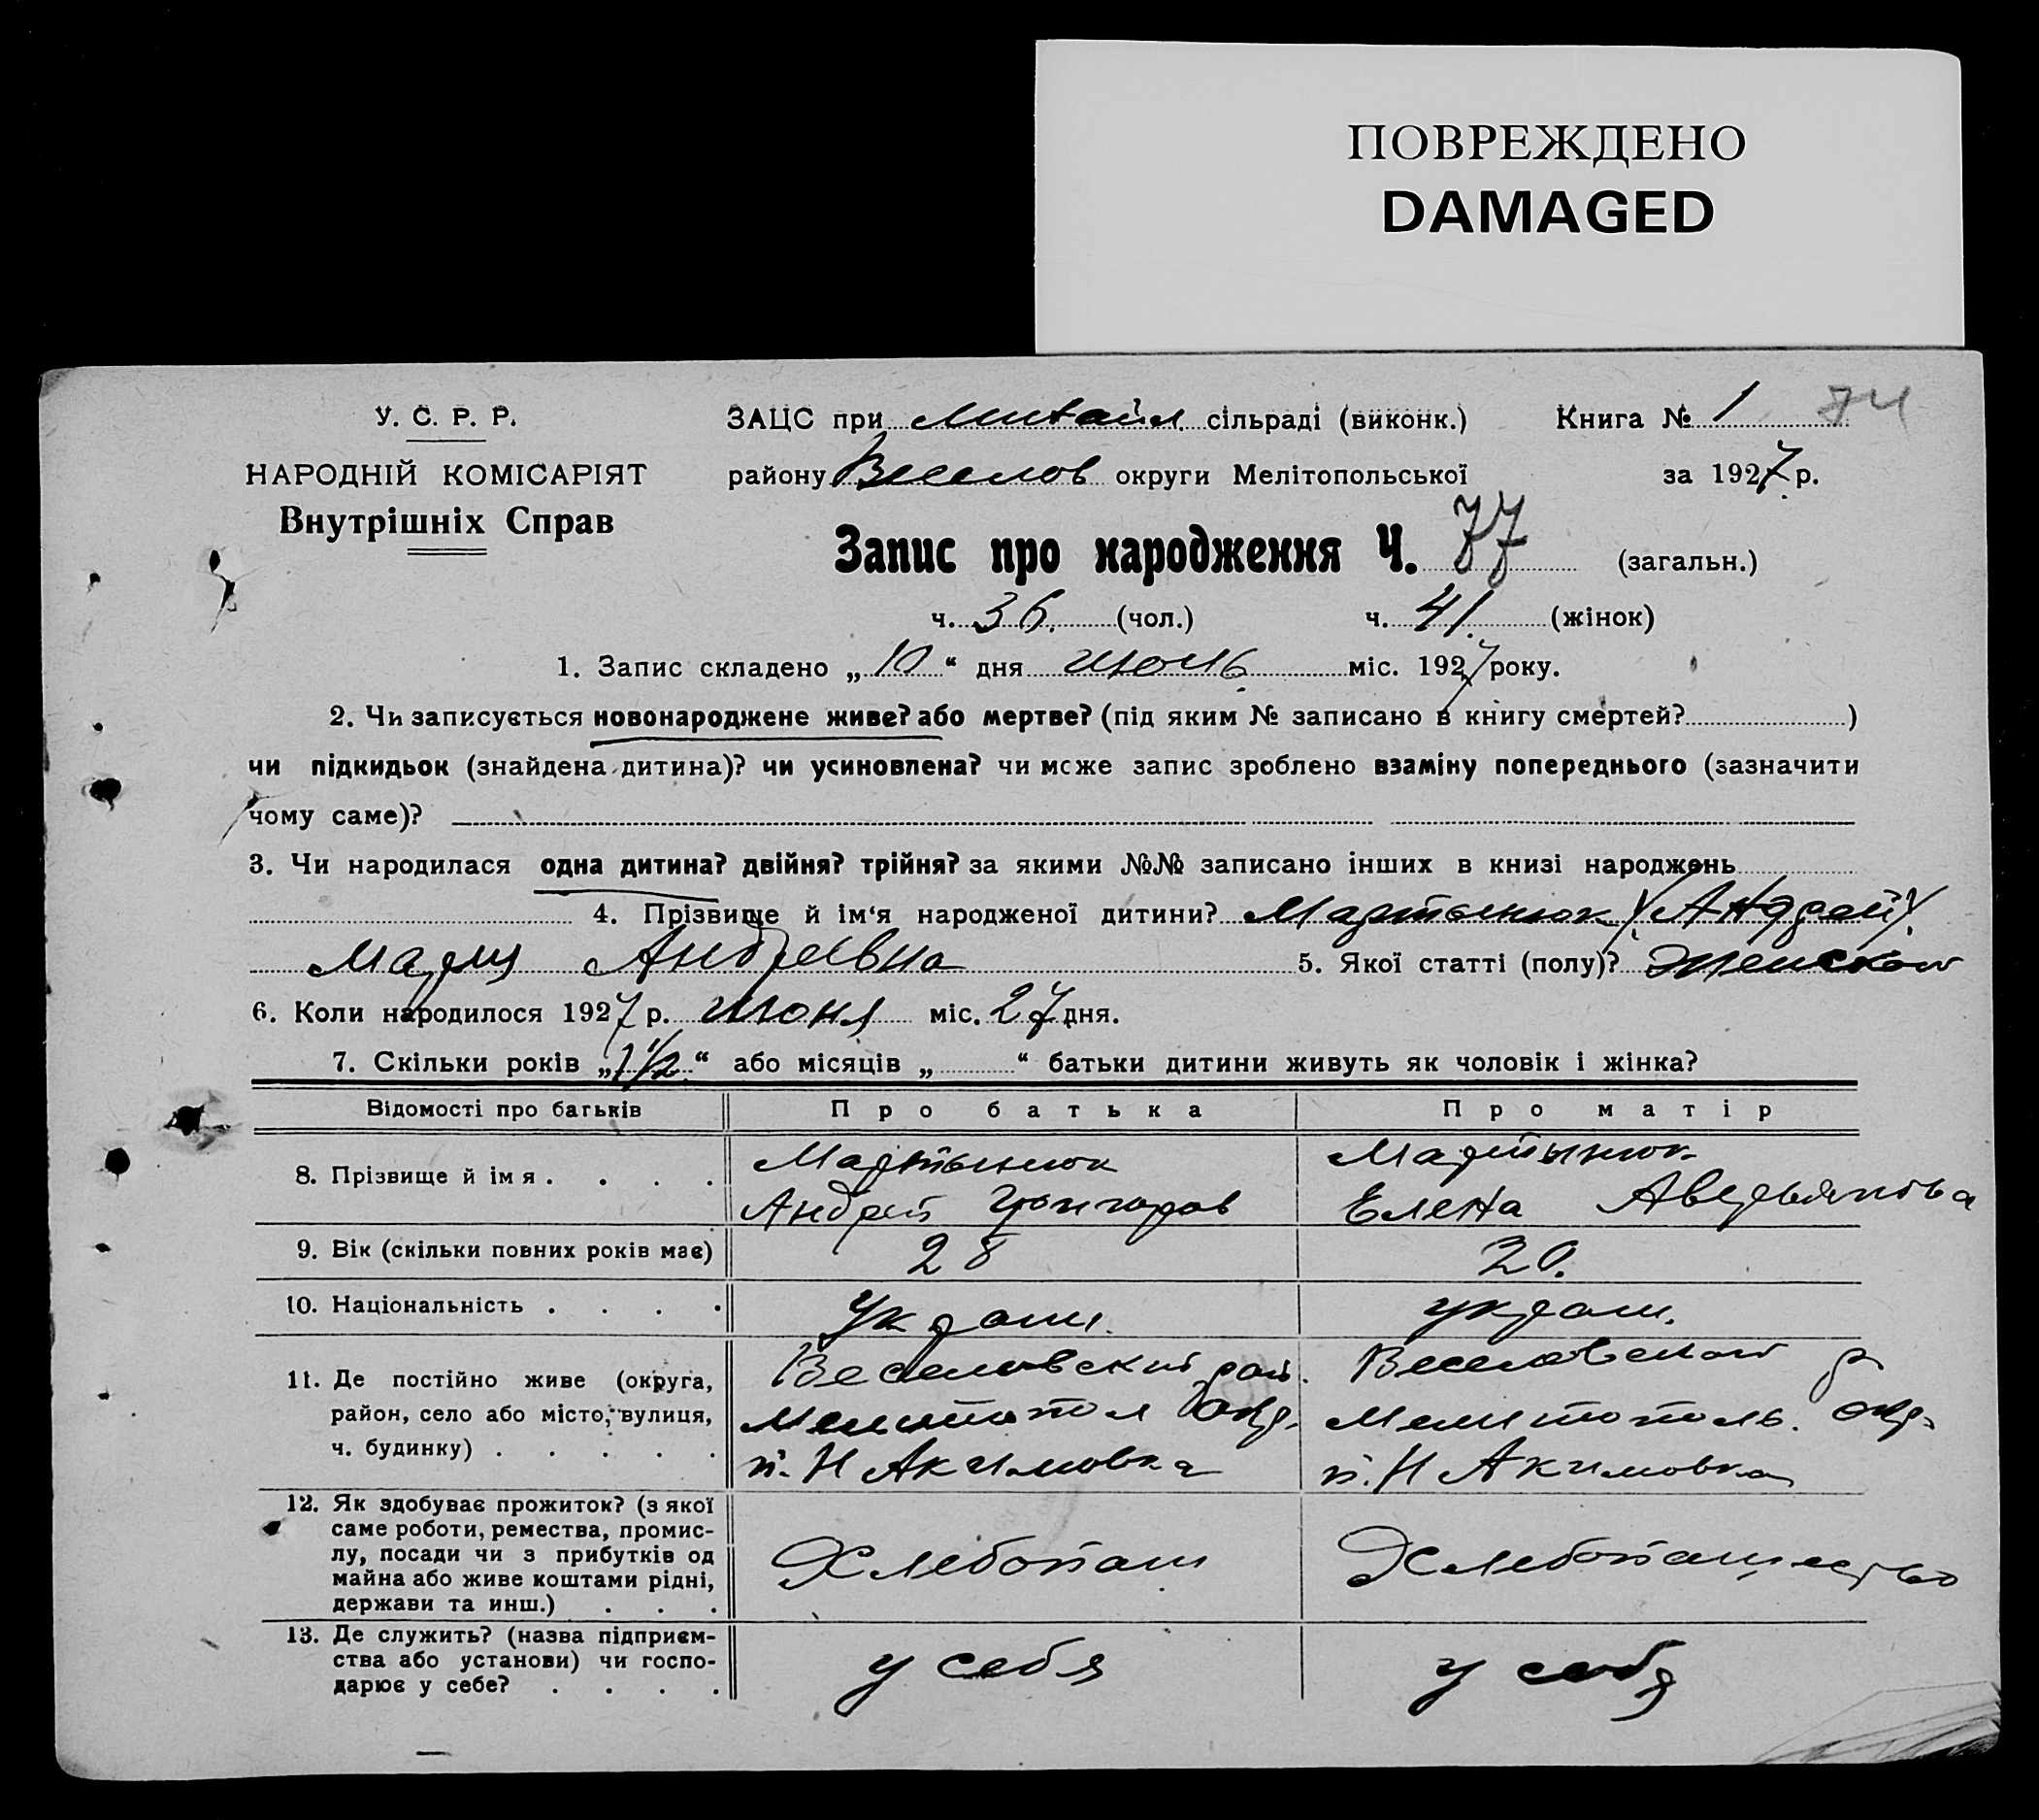 ПОВРЕЖДЕНО
DAMAGED
У. С. Р. Р.
НАРОДНІЙ КОМІСАРІЯТ
Внутрішніх Справ
ЗАЦС при Михайл. сільраді (виконк.) Книга № 1 74
району Веселов округи Мелітопольської за 1927 р.
Запис про народження Ч. 77 (загальн.)
ч. 36. (чол.) ч. 41. (жінок)
1. Запис складено „10“ дня июль міс. 1927 року.
2. Чи записується новонароджене живе? або мертве? (під яким № записано в книгу смертей? )
чи підкидьок (знайдена дитина)? чи усиновлена? чи може запис зроблено взаміну попереднього (зазначити
чому саме)?
3. Чи народилася одна дитина? двійня? трійня? за якими №№ записано інших в книзі народжень
4. Прізвище й ім‘я народженої дитини? Мартынюк (Андрей).
Мария Андреевна 5. Якої статті (полу)? Женской
6. Коли народилося 1927 р. июня міс. 27 дня.
7. Скільки років „1 1/2“ або місяців „ “ батьки дитини живуть як чоловік і жінка?
Відомості про батьків Про батька Про матір
8. Прізвище й ім я . . . . Мартынюк Мартынюк
Андрей Елена Аверьянова
9. Вік (скільки повних років має) 28 20.
10. Національність . . . . Украин. украин.
11. Де постійно живе (округа, Веселовский рай. Веселовской р
район, село або місто, вулиця, Мелитопол окр. Мелитополь. окр.
ч. будинку) . . . . . п. Н Акимовка п. Н Акимовка
12. Як здобуває прожиток? (з якої
саме роботи, ремества, промис-
лу, посади чи з прибутків од
майна або живе коштами рідні, Хлебопаш Хлебопашество
держави та инш.) . . .
13. Де служить? (назва підприєм-
ства або установи) чи госпо- у себя у себя
дарює у себе? . . . .